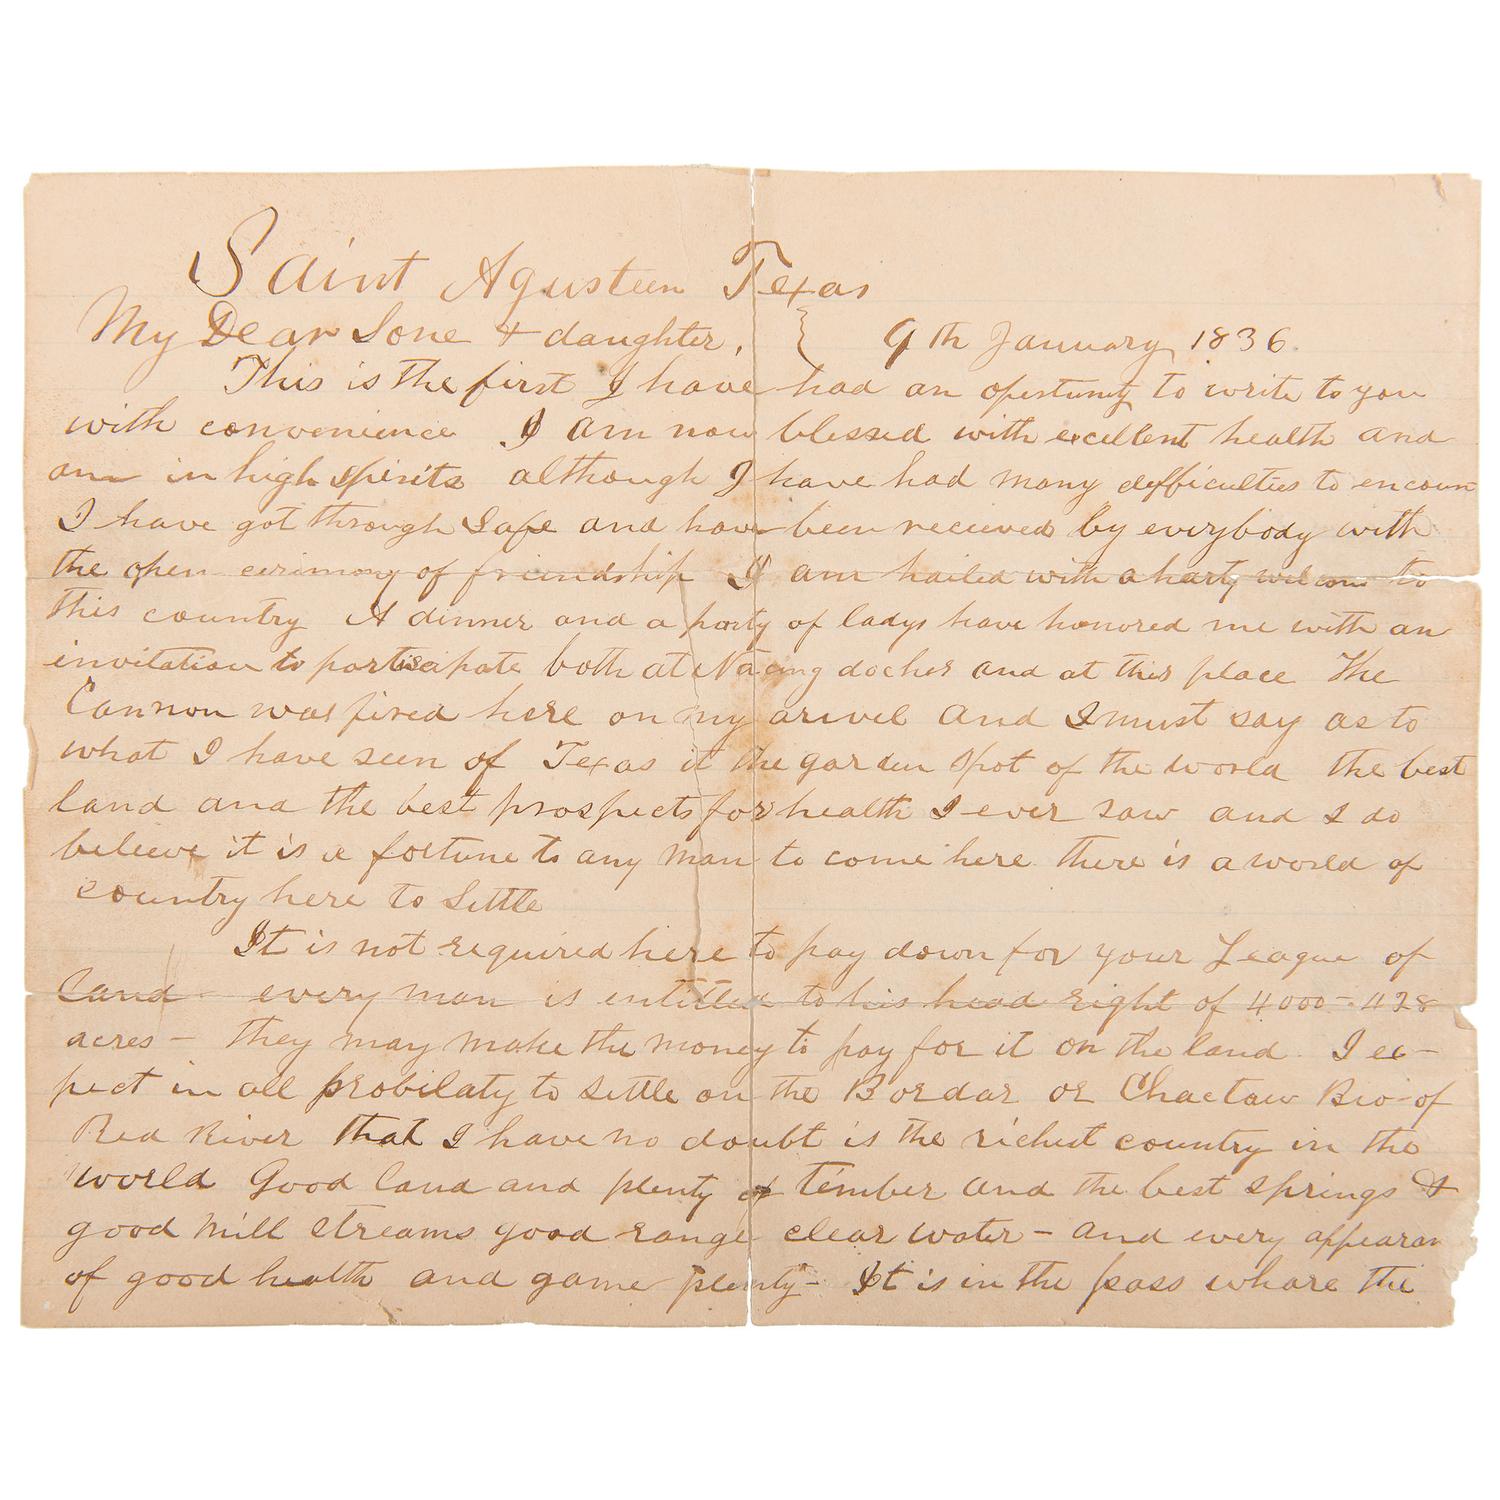 Saint Agusteen Texas
My Dear Sone & daughter, } 9th January 1836.
This is the first I have had an opertunity to write to you
with convenience I am now blessed with excellent health and
am in high spirits although I have had many difficulties to encoun
I have got through safe and have been recieved by everybody with
the open cerimony of friendship I am hailed with a harty welcom to
this country A dinner and a party of ladys have honored me with an
invitation to partisapate both at Nacingdoches and at this place The
Cannon was fired here on my arivel and I must say as to
what I have seen of Texas it the garden spot of the world the best
land and the best prospects for health I ever saw and I do
believe it is a fortune to any man to come here there is a world of
country here to settle
It is not required here to pay down for your League of
land - every man is entitled to his head right of 4000-428
acres - they may make the money to pay for it on the land. I ex-
pect in all probilaty to settle on the Bordar or Chactaw Bio of
Red River that I have no doubt is the richest country in the
world Good land and plenty of timber and the best springs &
good mill streams good range clear water - and every appearan
of good health and game plenty - It is in the pass whare the